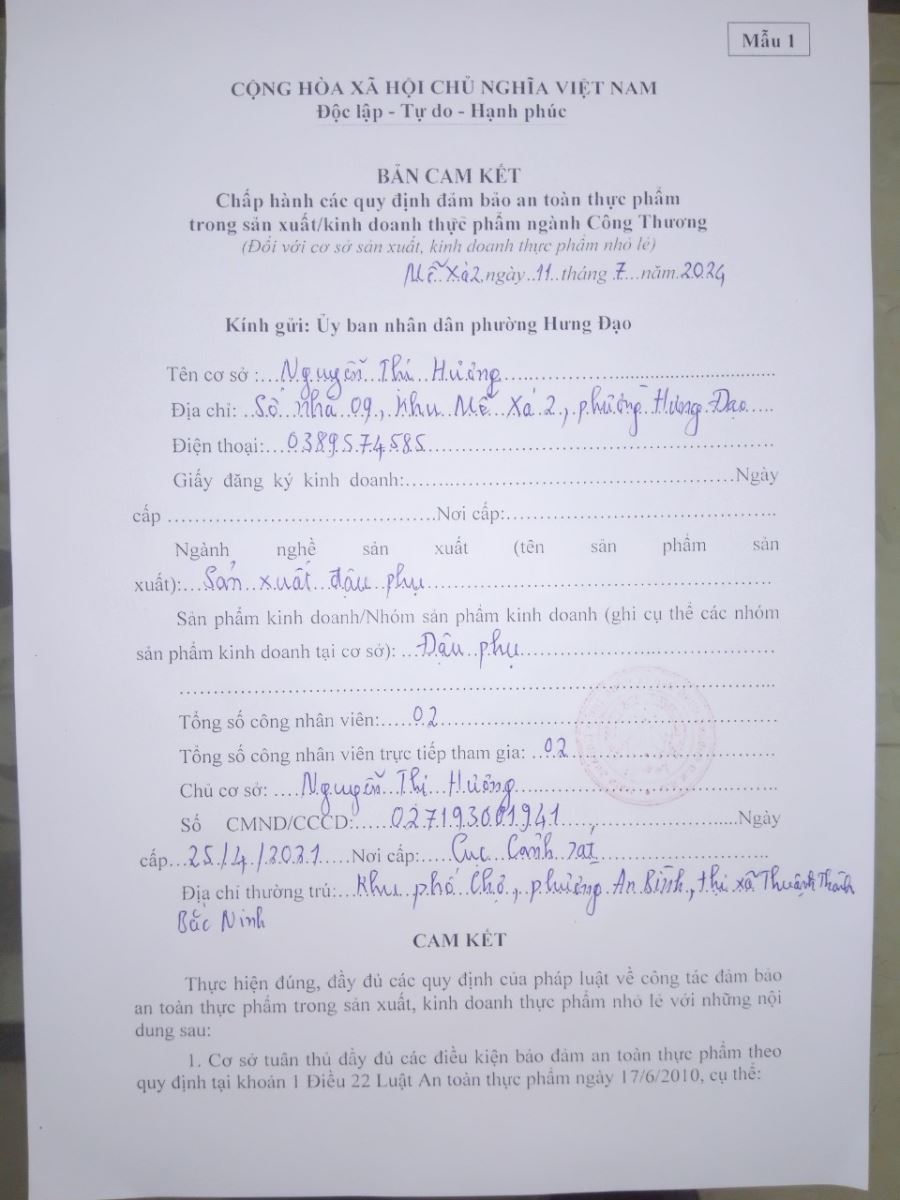 Mẫu 1
CỘNG HÒA XÃ HỘI CHỦ NGHĨA VIỆT NAM
Độc lập - Tự do - Hạnh phúc
BẢN CAM KẾT
Chấp hành các quy định đảm bảo an toàn thực phẩm
trong sản xuất/kinh doanh thực phẩm ngành Công Thương
(Đối với cơ sở sản xuất, kinh doanh thực phẩm nhỏ lẻ)
Mễ Xá 2, ngày 11 tháng 7 năm 2024
Kính gửi: Ủy ban nhân dân phường Hưng Đạo
Tên cơ sở : Nguyễn Thị Hương
Địa chỉ: Số nhà 09, khu Mễ Xá 2, phường Hưng Đạo
Điện thoại: 0389574585
Giấy đăng ký kinh doanh: Ngày
cấp Nơi cấp:
Ngành nghề sản xuất (tên sản phẩm sản
xuất): Sản xuất đậu phụ
Sản phẩm kinh doanh/Nhóm sản phẩm kinh doanh (ghi cụ thể các nhóm
sản phẩm kinh doanh tại cơ sở): Đậu phụ
Tổng số công nhân viên: 02
Tổng số công nhân viên trực tiếp tham gia: 02
Chủ cơ sở: Nguyễn Thị Hương
Số CMND/CCCD: 027193001941 Ngày
cấp 25/4/2021 Nơi cấp: Cục Cảnh sát
Địa chỉ thường trú: Khu phố Chợ, phường An Bình, thị xã Thuận Thành
Bắc Ninh
CAM KẾT
Thực hiện đúng, đầy đủ các quy định của pháp luật về công tác đảm bảo
an toàn thực phẩm trong sản xuất, kinh doanh thực phẩm nhỏ lẻ với những nội
dung sau:
1. Cơ sở tuân thủ đầy đủ các điều kiện bảo đảm an toàn thực phẩm theo
quy định tại khoản 1 Điều 22 Luật An toàn thực phẩm ngày 17/6/2010, cụ thể: